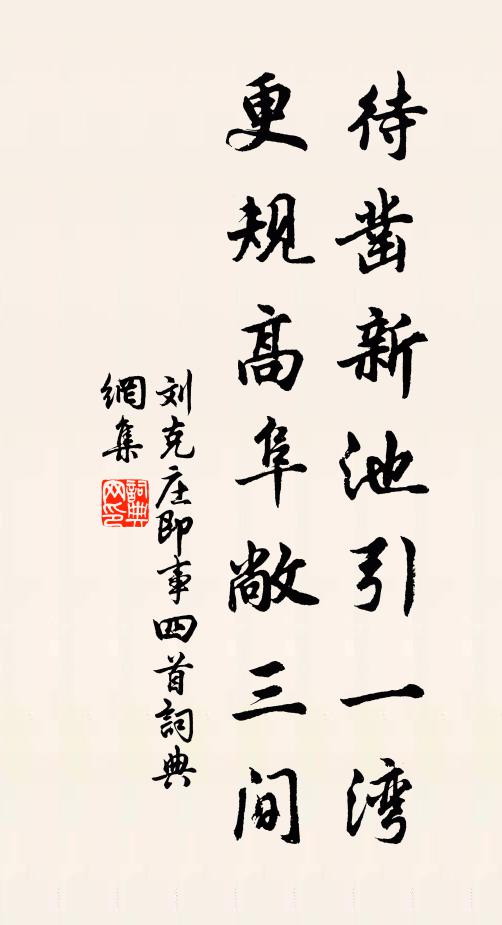 待凿新池引一湾
更规高阜敞三间
刘克庄即事四首詞典
網集
詞典
网印